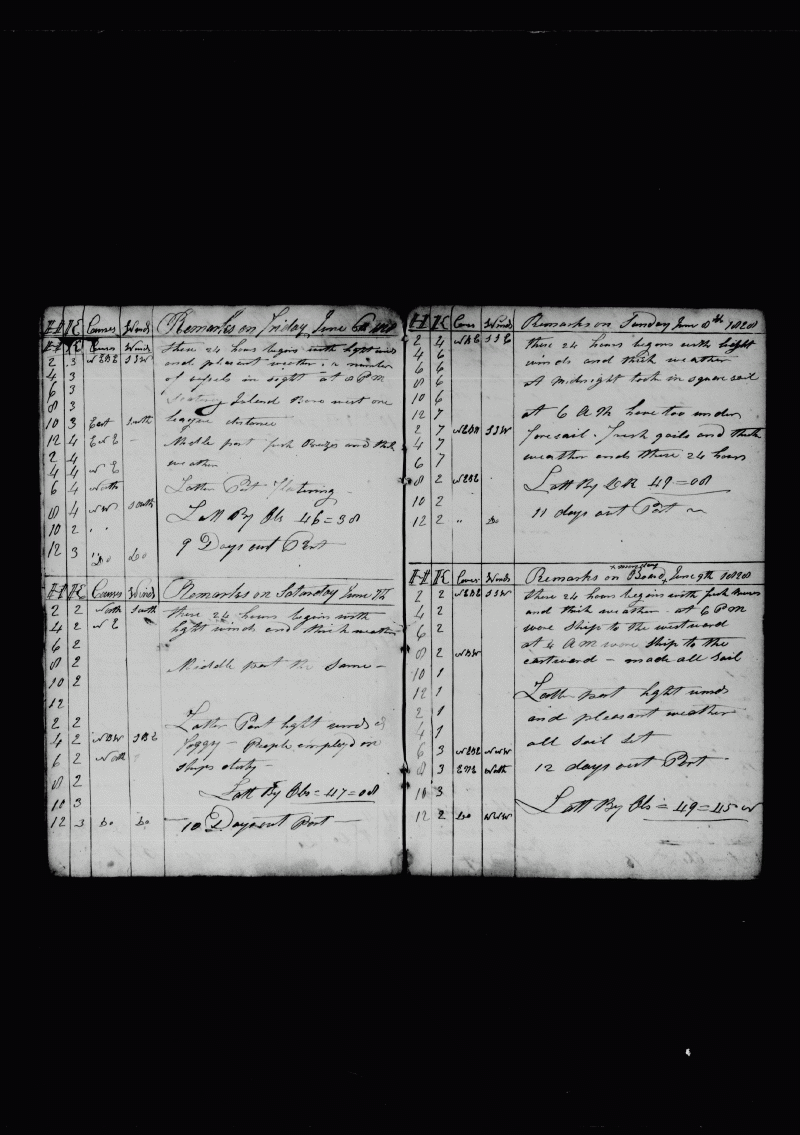 H H K Courses Winds Remarks on Friday June 6th 1828
H H K Courses Winds these 24 hours begins with light winds
2 3 NEBE SSW and pleasant weather. a number
4 3 of vessels in sight at 8 PM
6 3 Island Bore west one
8 3 league distance
10 3 East South
12 4 ENE - Middle part fresh Breezes and thick
2 4 weather
4 4 N E
6 4 North Latter Part
8 4 NW South Latt By Obs 46=38
10 2 " "
12 3 Do Do 9 Days out Port
H H K Courses Winds Remarks on Saturday June 7th
2 2 North South these 24 hours begins with
4 2 N E light winds and thick weather
6 2
8 2 Middle part the Same -
10 2
12
2 2 Latter Part light winds &
4 2 NBW SBE Foggy - People employd on
6 2 North ships duty -
8 2 Latt By Obs = 47=08
10 3
12 3 Do Do 10 Days out Port -
H H K Cour Winds Remarks on Sunday June 8th 1828
2 4 NBE SSE these 24 hours begins with light
4 6 winds and thick weather
6 6 At Midnight took in square sail
8 6
10 6
12 7 at 6 A M hove too under
2 7 NEBN SSW foresail. fresh gails and thick
4 7 weather ends these 24 hours
6 7
8 2 NEBE Latt By DR 49=08
10 2
12 2 " Do 11 days out Port
H H K Cours Winds Remarks on Board x Monday June 9th 1828
2 2 NEBE SSW these 24 hours begins with fresh Breezes
4 2 and thick weather. at 6 PM
6 2 wore ships to the westward
8 2 NBW at 4 AM wore ship to the
10 1 eastward - made all sail
12 1 Latter part light winds
2 1 and pleasant weather
4 1 all sail set
6 3 NEBE WNW
8 3 ENE North 12 days out Port
10 3
12 2 Do WNW Latt By Obs = 49=45 N